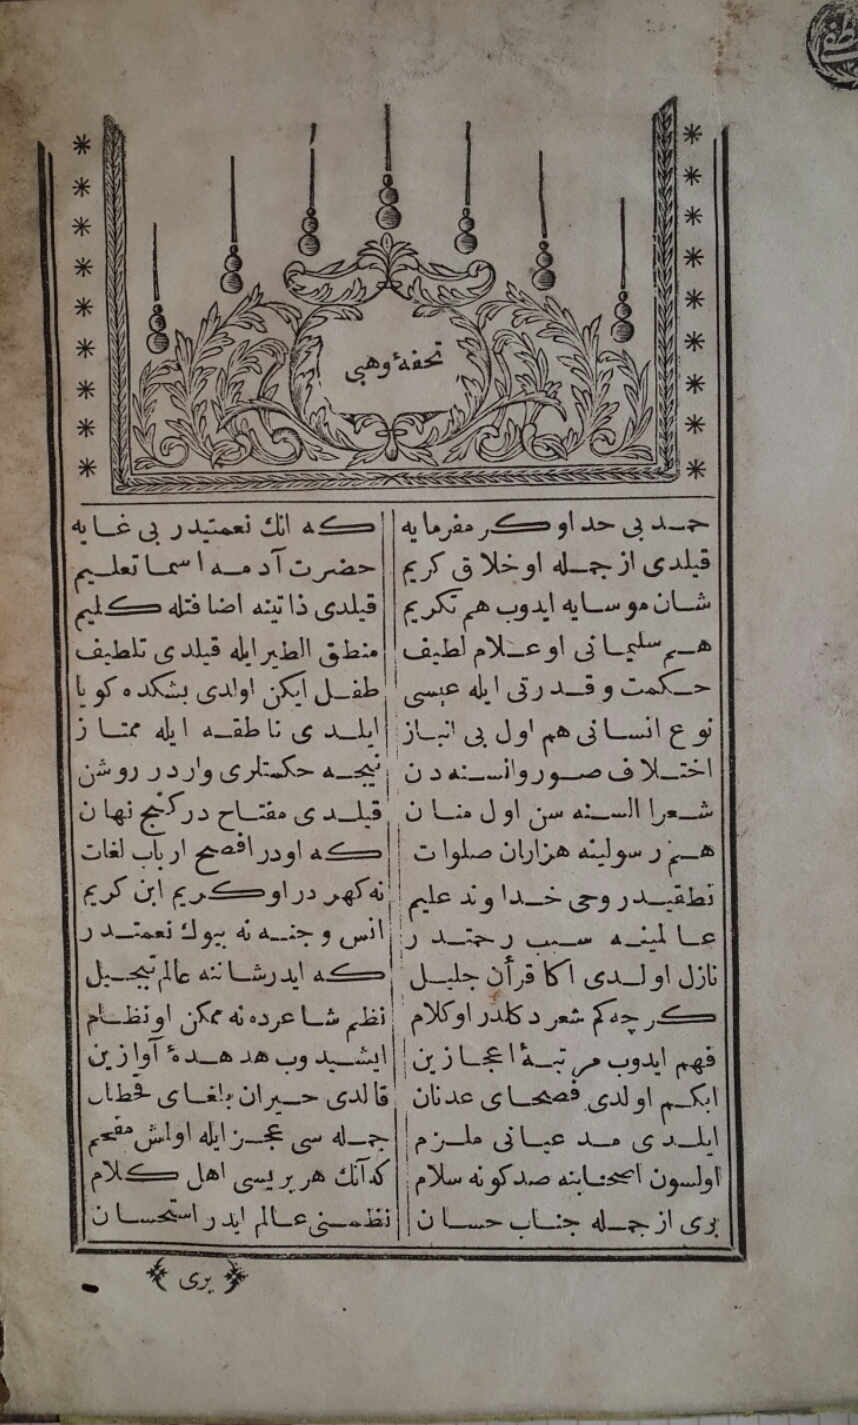 تحفۀ وهبی
حمد بی حد او کرمفرمایه که انك نعمتیدر بی غایه
قیلدی از جمله او خلاق کریم حضرت آدمه اسما تعلیم
شان موسایه ایدوب هم تکریم قیلدی ذاتینه اضافتله کلیم
هم سلیمانی او علام لطیف منطق الطیر ایله قیلدی تلطیف
حکمت و قدرتی ایله عیسی طفل ایکن اولدی بشکده کویا
نوع انسانی هم اول بی انباز ایلدی ناطقه ایله ممتاز
اختلاف صور والسنه دن نیجه حکمتلری واردر روشن
شعرا السنه سن اول منان قیلدی مفتاح در کنج نهان
هم رسولینه هزاران صلوات که اودر افصح ارباب لغات
نطقیدر وحی خداوند علیم نه کهردر او کریم ابن کریم
عالمینه سبب رحمتدر انس و جنه نه بیوك نعمتدر
نازل اولدی اکا قرأن جلیل که ایدر شاننه عالم تبجیل
کرچه کم شعر دکلدر او کلام نظم شاعرده نه ممکن او نظام
فهم ایدوب مرتبۀ اعجازین ایشیدوب هدهدۀ آوازین
ابکم اولدی فصحای عدنان قالدی حیران بلغای قحطان
ایلدی مدعیانی ملزم جمله سی عجز ایله اولمش مفحم
اولسون اصحابنه صدکونه سلام که آنك هر بریسی اهل کلام
بری از جمله جناب حسان نظمنی عالم ایدر استحسان
بری